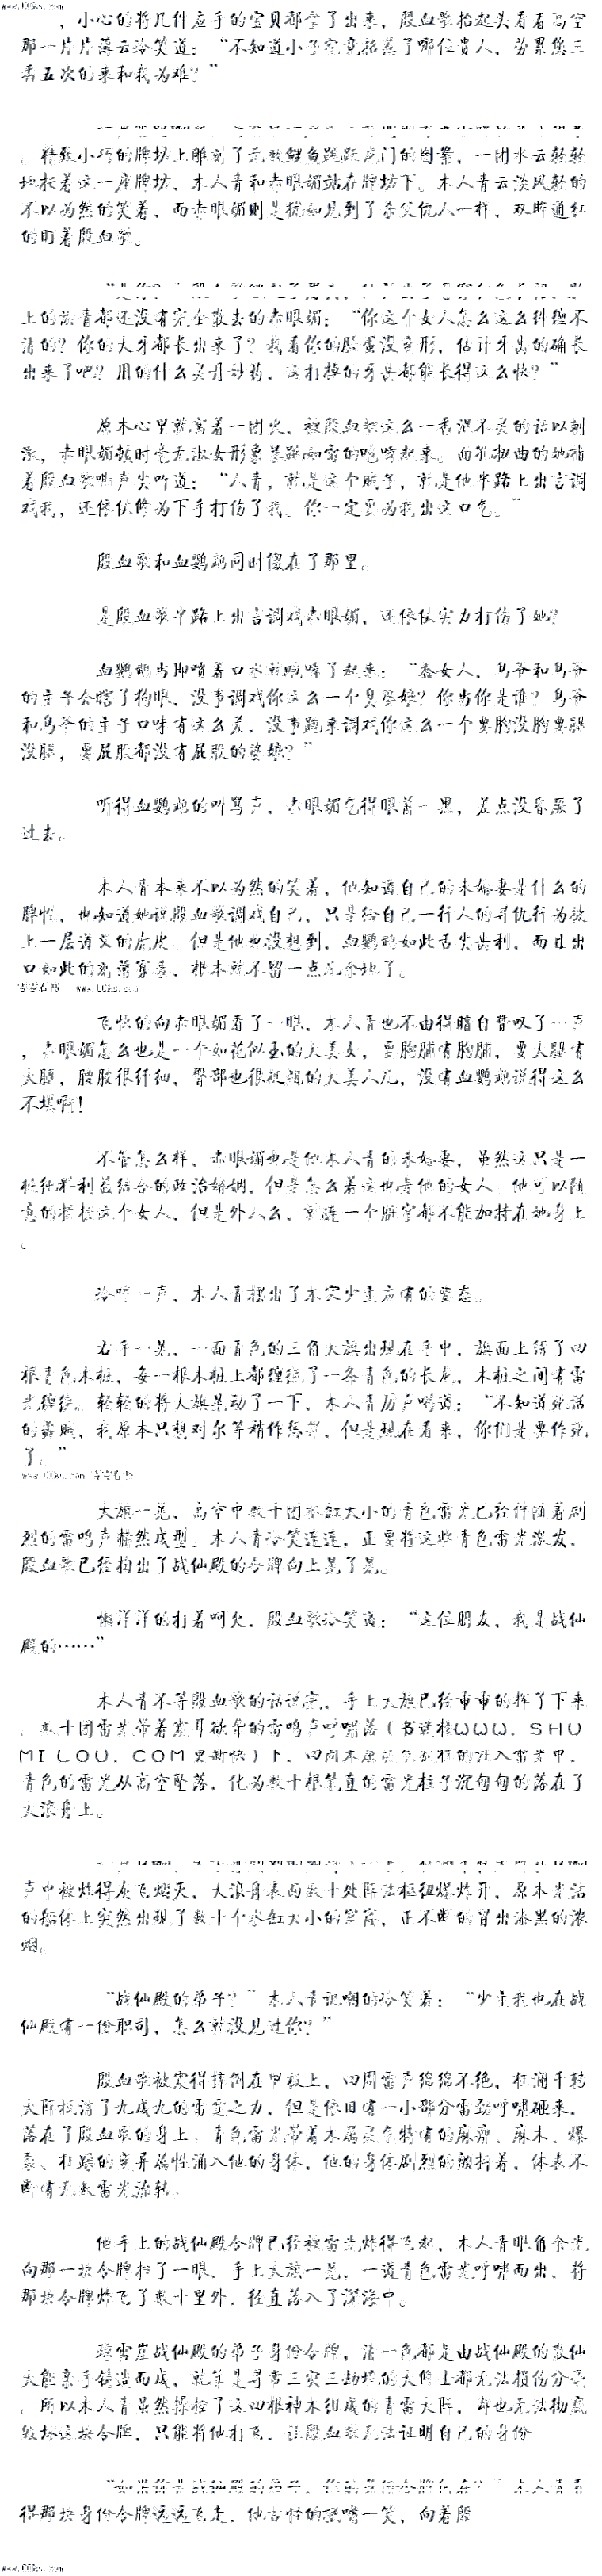 ，小心的将几件应手的宝贝都拿了出来，殷血歌抬起头看着高空
那一片片薄云冷笑道：“不知道小子究竟招惹了哪位贵人，劳累您三
番五次的来和我为难？”
。精致小巧的牌坊上雕刻了无数鲤鱼跳跃龙门的图案，一团水云轻轻
地托着这一座牌坊，木人青和赤眼媚站在牌坊下。木人青云淡风轻的
不以为然的笑着，而赤眼媚则是犹如见到了杀父仇人一样，双眸通红
的盯着殷血歌。
上的淤青都还没有完全散去的赤眼媚：“你这个女人怎么这么纠缠不
清的？你的大牙都长出来了？我看你的脸蛋没变形，估计牙齿的确长
出来了吧？用的什么灵丹妙药，这打掉的牙齿都能长得这么快？”
原本心里就窝着一团火，被殷血歌这么一番混不吝的话以刺
激，赤眼媚顿时毫无淑女形象暴跳如雷的咆哮起来。面孔扭曲的她指
着殷血歌嘶声尖叫道：“人青，就是这个贼子，就是他半路上出言调
戏我，还依仗修为下手打伤了我。你一定要为我出这口气。”
殷血歌和血鹦鹉同时傻在了那里。
是殷血歌半路上出言调戏赤眼媚，还依仗实力打伤了她？
血鹦鹉当即喷着口水就咆哮了起来：“蠢女人，鸟爷和鸟爷
的主子会瞎了狗眼，没事调戏你这么一个臭婆娘？你当你是谁？鸟爷
和鸟爷的主子口味有这么差，没事跑来调戏你这么一个要胸没胸要腿
没腿，要屁股都没有屁股的婆娘？”
听得血鹦鹉的叫骂声，赤眼媚气得眼前一黑，差点没昏厥了
过去。
木人青本来不以为然的笑着，他知道自己的未婚妻是什么的
脾性，也知道她说殷血歌调戏自己，只是给自己一行人的寻仇行为披
上一层道义的虎皮。但是他也没想到，血鹦鹉如此舌尖齿利，而且出
口如此的刻薄寡毒，根本就不留一点儿余地了。
飞快的向赤眼媚看了一眼，木人青也不由得暗自赞叹了一声
，赤眼媚怎么也是一个如花似玉的大美女，要胸脯有胸脯，要大腿有
大腿，腰肢很纤细，臀部也很挺翘的大美人儿，没有血鹦鹉说得这么
不堪啊！
不管怎么样，赤眼媚也是他木人青的未婚妻，虽然这只是一
桩纯粹利益结合的政治婚姻，但是怎么着这也是他的女人。他可以随
意的摧残这个女人，但是外人么，就连一个脏字都不能加持在她身上
。
冷哼一声，木人青摆出了木家少主应有的姿态。
右手一晃，一面青色的三角大旗出现在手中，旗面上绣了四
根青色木桩，每一根木桩上都缠绕了一条青色的长龙，木桩之间有雷
光缠绕。轻轻的将大旗晃动了一下，木人青厉声喝道：“不知道死活
的蟊贼，我原本只想对尔等稍作惩戒，但是现在看来，你们是要作死
了。”
www.00ks.com 零零看书
大旗一晃，高空中数十团水缸大小的青色雷光已经伴随着剧
烈的雷鸣声赫然成型。木人青冷笑连连，正要将这些青色雷光激发，
殷血歌已经掏出了战仙殿的令牌向上晃了晃。
懒洋洋的打着呵欠，殷血歌冷笑道：“这位朋友，我是战仙
殿的……”
木人青不等殷血歌的话说完，手上大旗已经重重的挥了下来
。数十团雷光带着震耳欲聋的雷鸣声呼啸落（书迷楼WWW．SHU
MILOU．COM更新快）下，四周木属灵气疯狂的注入雷芒中，
青色的雷光从高空坠落，化为数十根笔直的雷光柱子沉甸甸的落在了
大浪舟上。
声中被炸得灰飞烟灭，大浪舟表面数十处阵法枢纽爆炸开，原本光洁
的船体上突然出现了数十个水缸大小的窟窿，正不断的冒出漆黑的浓
烟。
“战仙殿的弟子？”木人青讥嘲的冷笑着：“少主我也在战
仙殿有一份职司，怎么就没见过你？”
殷血歌被震得摔倒在甲板上，四周雷声绵绵不绝，
大阵抵消了九成九的雷霆之力，但是依旧有一小部分雷劲呼啸砸来，
落在了殷血歌的身上。青色雷光带着木属灵气特有的麻痹、麻木、爆
裂、狂躁的变异属性涌入他的身体，他的身体剧烈的颤抖着，体表不
断有无数雷光流转。
他手上的战仙殿令牌已经被雷光炸得飞起，木人青眼角余光
向那一块令牌扫了一眼，手上大旗一晃，一道青色雷光呼啸而出，将
那块令牌炸飞了数十里外，径直落入了深海中。
琼雪崖战仙殿的弟子身份令牌，清一色都是由战仙殿的散仙
大能亲手铸造而成，就算是寻常三灾三劫境的大修士都无法损伤分毫
。所以木人青虽然操控了这四根神木组成的青雷大阵，却也无法彻底
毁坏这块令牌，只能将他打飞，让殷血歌无法证明自己的身份。
得那块身份令牌远远飞走，他古怪的抿嘴一笑，向着殷